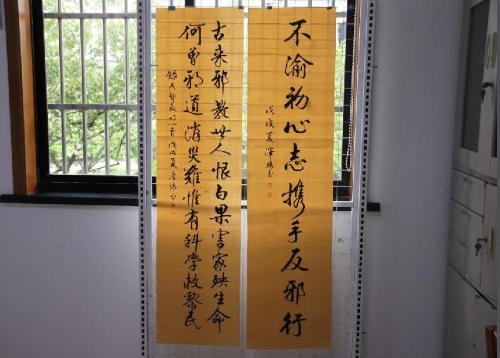 不渝初心志携手反邪行
戊戌夏
古来邪教世人恨果害家殃生命
何曾邪道消灾难惟有科学救黎民
戊戌夏